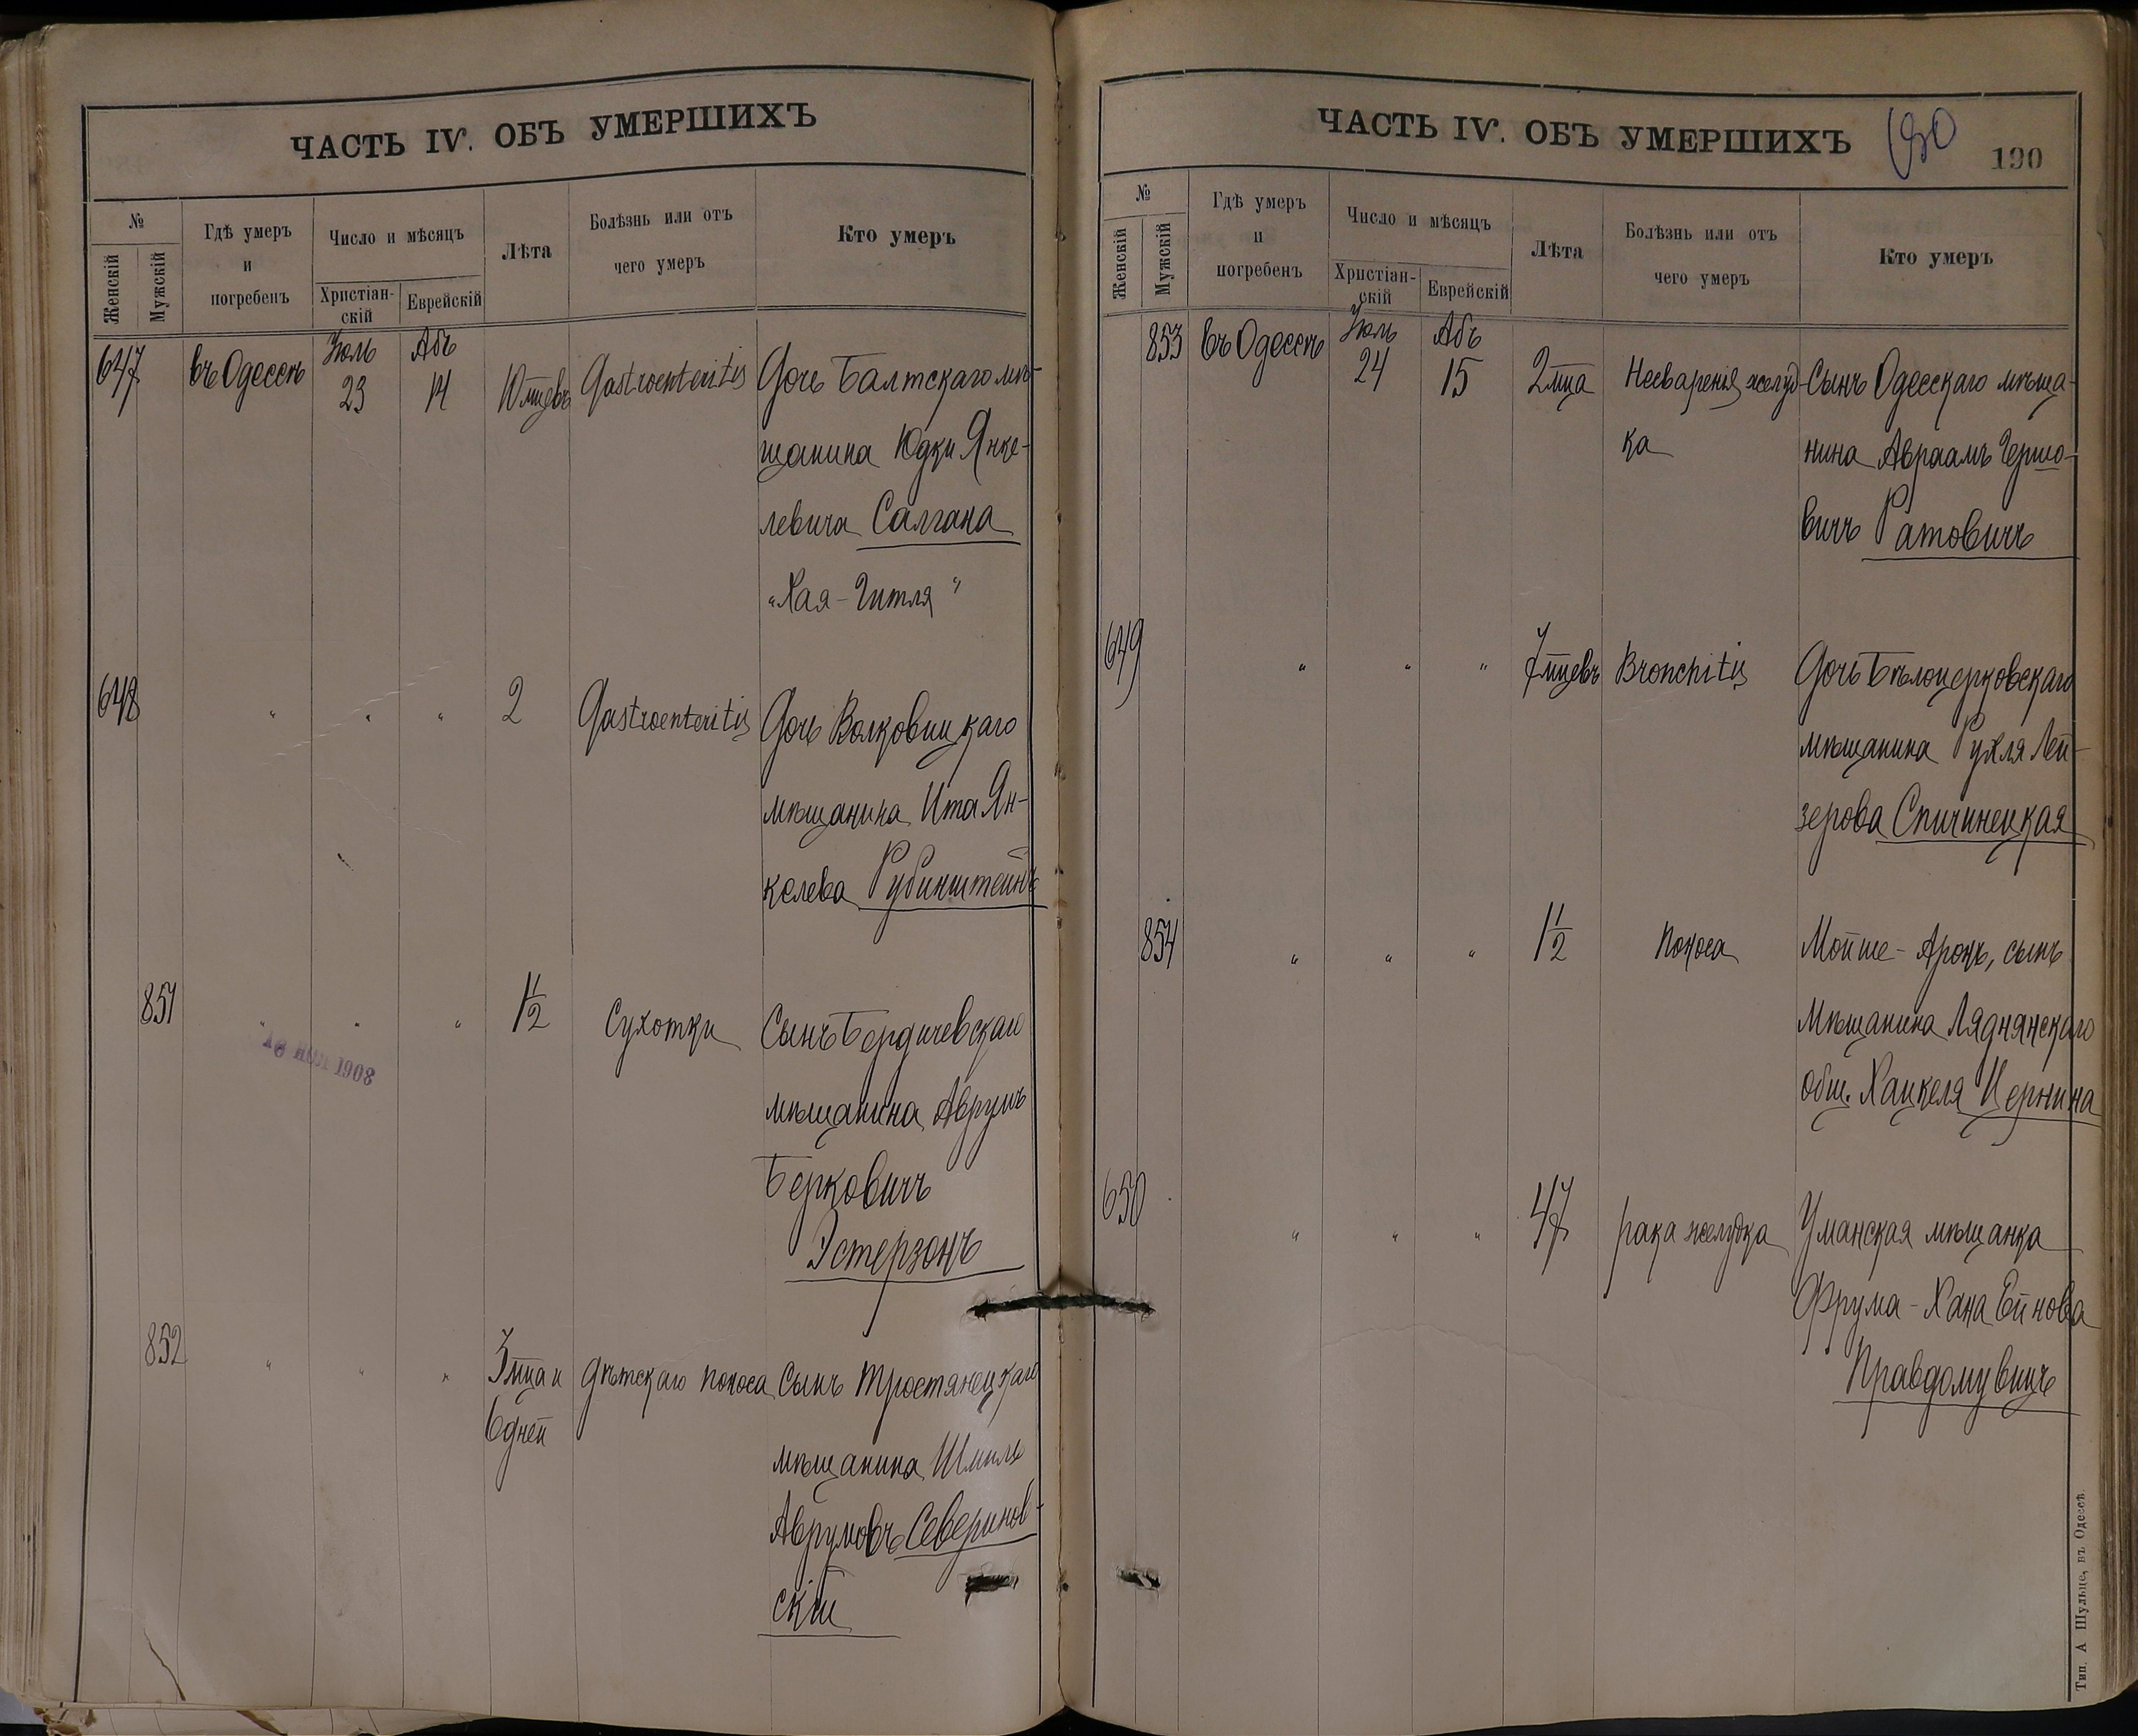 ЧАСТЬ IV. ОБЪ УМЕРШИХЪ
№
Женскій
Мужскій
Гдѣ умеръ
и
погребенъ
Число и мѣсяцъ
Христіан-
скій
Еврейскій
Лѣта
Болѣзнь или отъ
чего умеръ
Кто умеръ
647 въ Одессѣ Іюль 23 Абъ 14 10 мцевъ Gastroenteritis Дочь Балтскаго мѣ-
щанина Юдки Янке-
левича Салгана
"Хая-Гитля"
648 " " " 2 Gastroenteritis Дочь Волковицкаго
мѣщанина Ита Ян-
келева Рубинштейнъ
851 " " " 1½ Сухотки Сынъ Бердичевскаго
мѣщанина Аврумъ
Берковичъ
Эстерзонъ
1908
852 " " " 3 мца и дѣтскаго поноса Сынъ Тростянецкаго
6 дней
мѣщанина Шмиль
Аврумовъ Северинов-
скій
ЧАСТЬ IV. ОБЪ УМЕРШИХЪ
190
190
№
Женскій
Мужскій
Гдѣ умеръ
и
погребенъ
Число и мѣсяцъ
Христіан-
скій
Еврейскій
Лѣта
Болѣзнь или отъ
чего умеръ
Кто умеръ
853 въ Одессѣ Іюль 24 Абъ 15 2 мца Несваренія желуд- Сынъ Одесскаго мѣща-
ка нина Авраамъ Гершо-
вичъ Ратовичъ
649 " " " 7 мцевъ Bronchitis Дочь Бѣлоцерковскаго
мѣщанина Рухля Лей-
зерова Спичинецкая
854 " " " 1½ поноса Мойше-Аронъ, сынъ
мѣщанина Ляднянскаго
общ. Хацкеля Цернина
650 " " " 47 рака желудка Уманская мѣщанка
Фрума-Хана Ейнова
Правдомувицъ
Тип. А Шульце, въ Одессѣ.